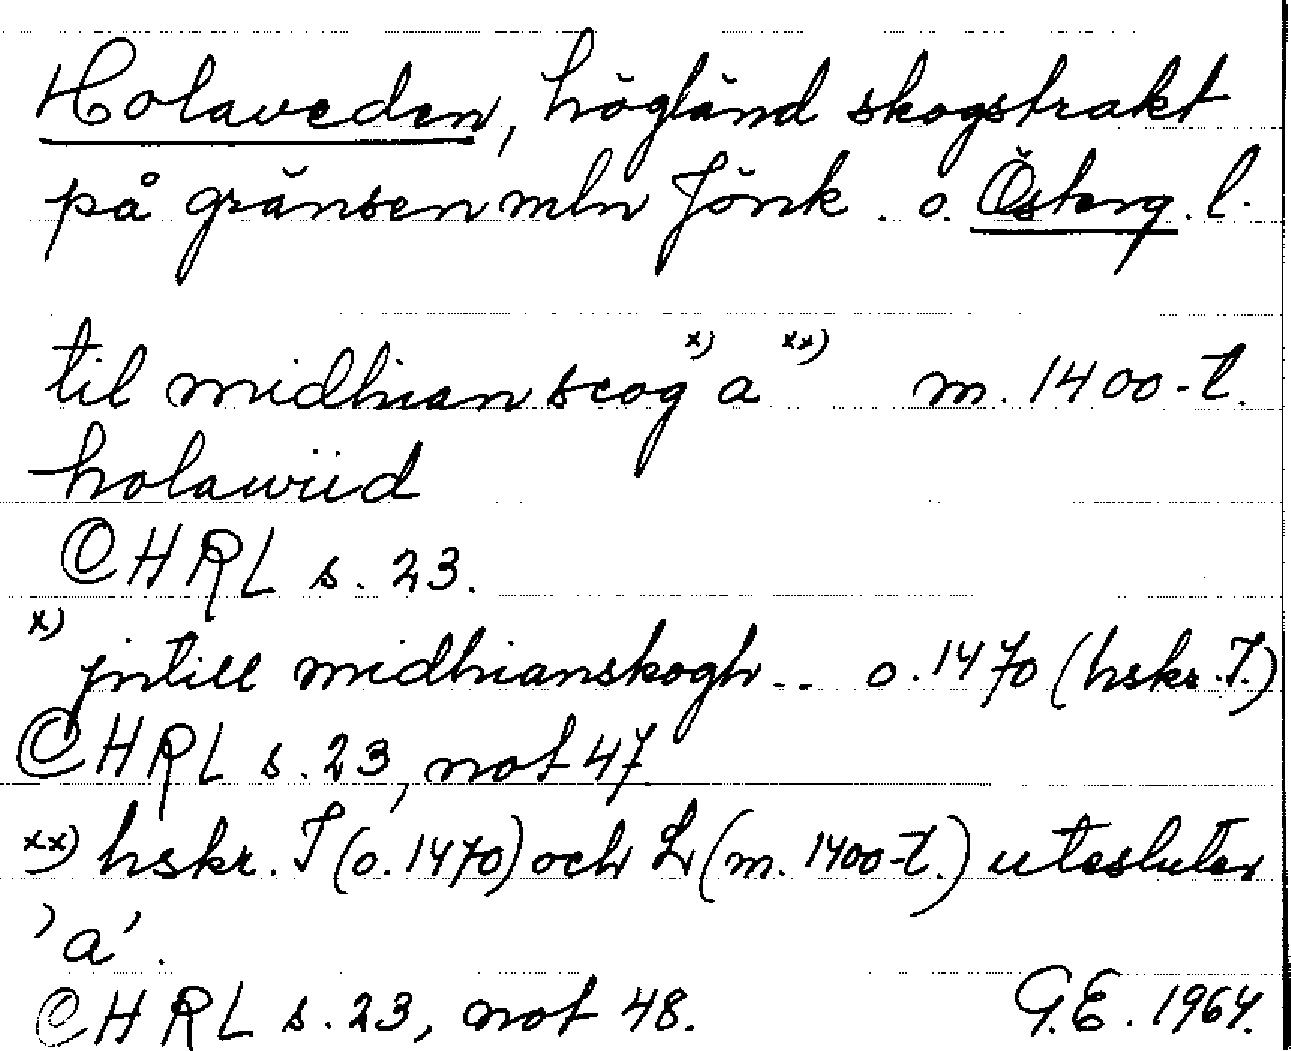 Holaveden, högländ skogstrakt
på gränsen mln Jönk. o. Österg. l.
til midhian scog x) a xx) m. 1400-t.
holawiid
CHRL s. 23.
x) jntill midhianskogh.. o. 1470 (hskr. T.)
CHRL s. 23, not 47
xx) hskr. T (o. 1470) och L (m. 1400-t.) utesluter
'a'.
CHRL s. 23, not 48. G.E. 1964.